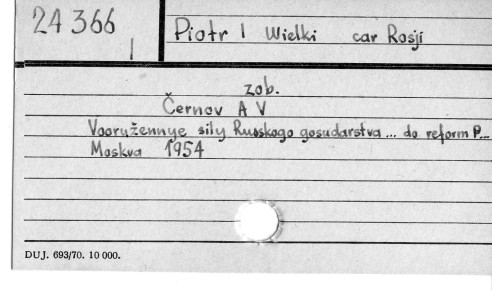 24 366
I
Piotr I Wielki car Rosji
zob.
Černov A V
Vooružennye sily Russkogo gosudarstva ... do reform P...
Moskva 1954
DUJ. 693/70. 10 000.